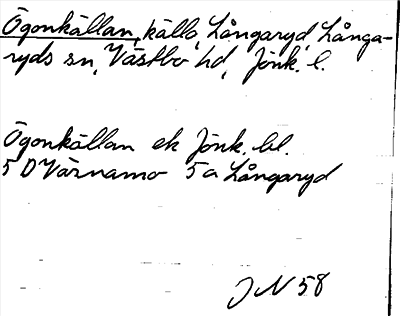 Ögonkällan, källa, Långaryd, Långa-
ryds sn, Västbo hd, Jönk. l.
Ögonkällan ek Jönk. bl.
5 D Värnamo 5a Långaryd
JN 58